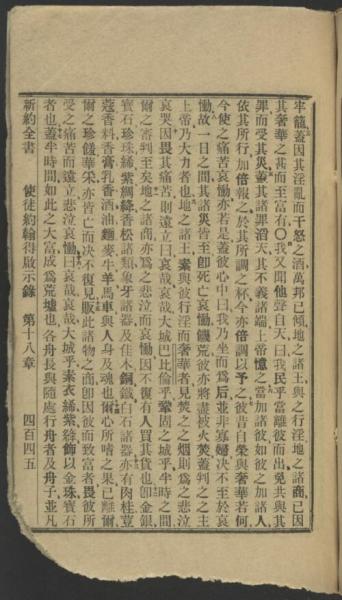 牢籠蓋因其淫亂而干怒之酒萬邦已傾地之諸王與之行淫地之諸商已因
其奢華之甚而至富有〇我又聞他聲自天曰我民乎當離彼而出免共與其
罪而受其災蓋其諸罪滔天其不義諸端上帝憶之當加諸彼如彼之加諸人
依其所行加倍報之於其所調之杯今亦倍調以予之彼昔自榮與奢華若何
今使之痛苦哀慟亦若是蓋彼心中曰我乃坐而爲后並非寡婦決不至於哀
慟故一日之間其諸災皆至卽死亡哀慟饑荒彼亦將盡被火焚蓋判之之主
上帝乃大力者也地之諸王素與彼行淫而奢華者見焚之之烟則爲之悲泣
哀哭因畏其痛苦則遠立曰哀哉哀哉大城巴比倫乎鞏固之城乎半時之間
爾之審判至矣地之諸商亦爲之悲泣而哀慟因不復有人買其貨也卽金銀
寶石珍珠絺紫綢絳香松諸類象牙諸器及佳木銅鐵白石諸器亦有肉桂荳
蔻香料香膏乳香酒油麵麥牛羊馬車與人身及魂也爾心所嗜之果已離爾
爾之珍饈華采亦皆亡而決不復見販此諸物之商卽因彼而致富者畏彼所
受之痛苦而遠立悲泣哀慟曰哀哉哀哉大城乎素衣絺紫絳飾以金珠寶石
者也蓋半時間如此之大富成爲荒墟也各舟長與隨處行舟者及舟子並凡
新約全書 使徒約翰得啟示錄 第十八章 四百四五